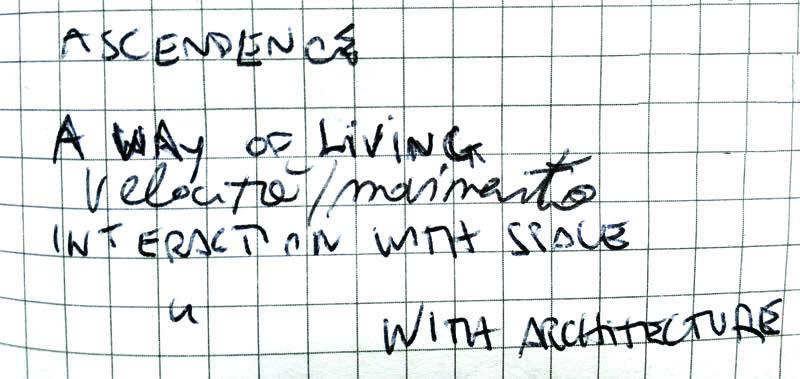 ASCENDENCE
A WAY OF LIVING
Velocità/movimento
INTERACTION WITH SPACE
" WITH ARCHITECTURE